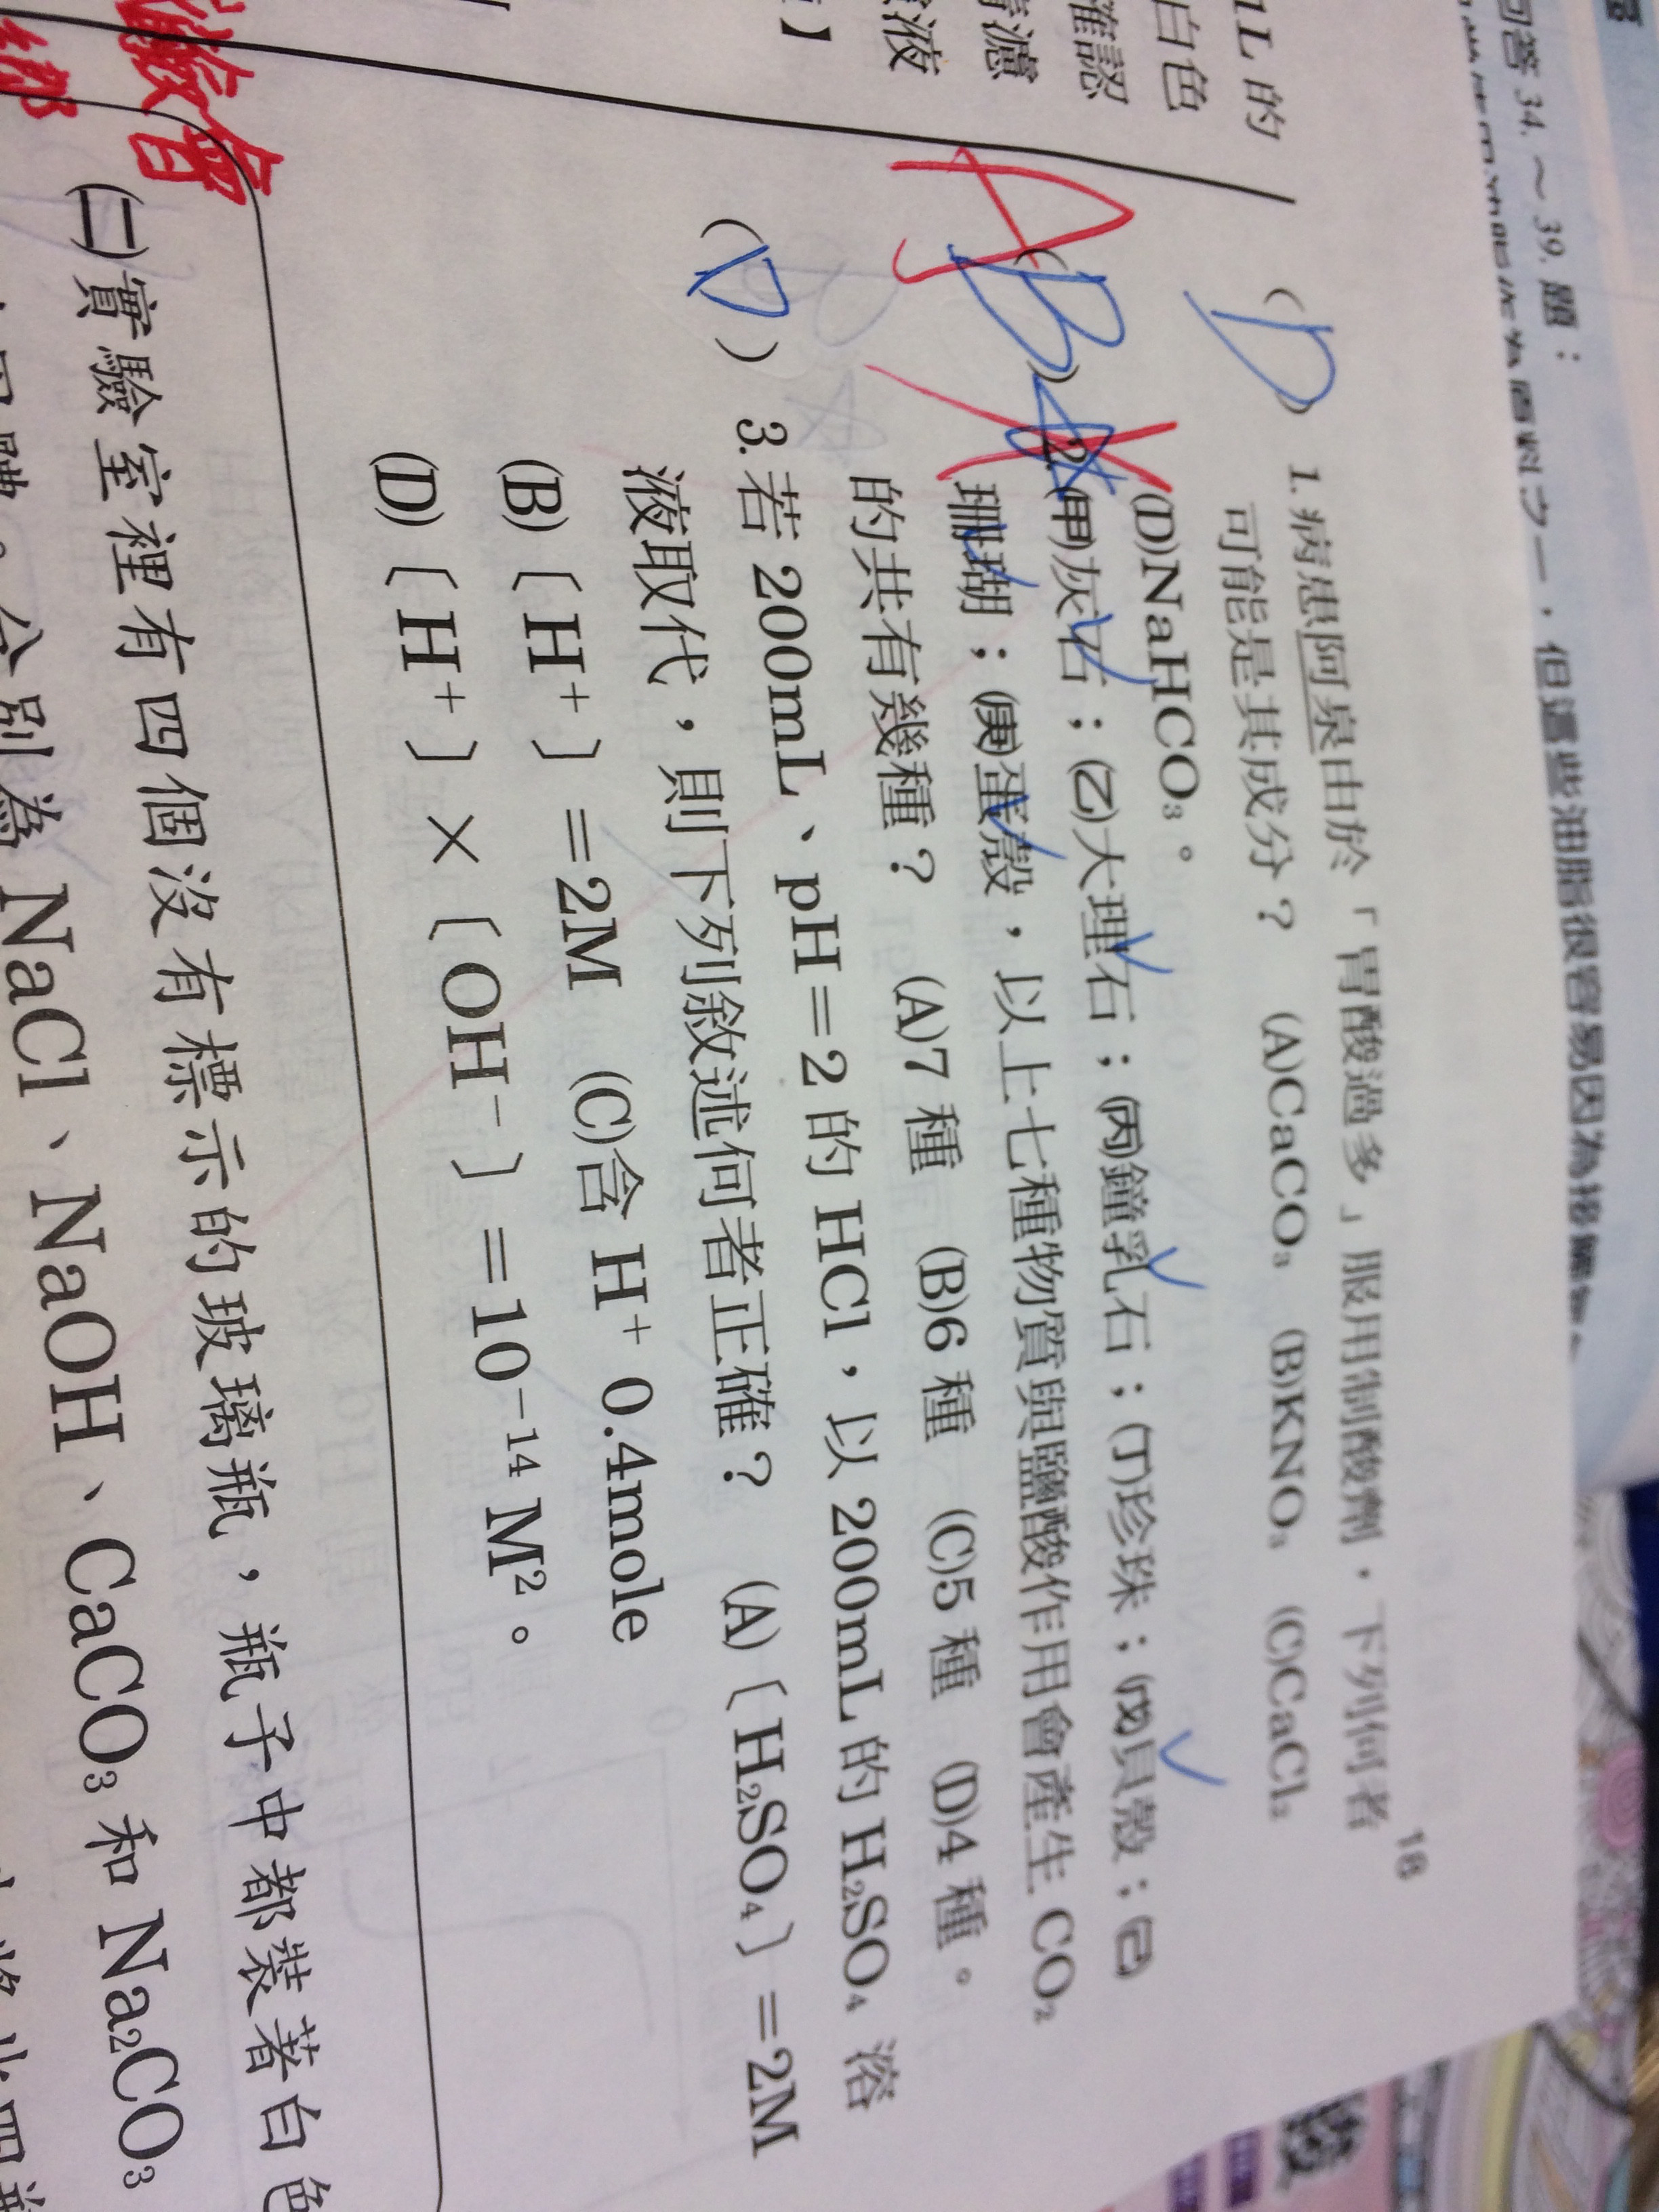 回答 34. ~ 39. 題：
之一，但這些油脂很容易因為
1L 的
白色
確認
濾
液
】
18
(D) 1. 病患阿泉由於「胃酸過多」服用制酸劑，下列何者
可能是其成分？ (A)CaCO₃ (B)KNO₃ (C)CaCl₂
(D)NaHCO₃。
A
(B) 2. (甲)灰石；(乙)大理石；(丙)鐘乳石；(丁)珍珠；(戊)貝殼；(己)
珊瑚；(庚)蛋殼，以上七種物質與鹽酸作用會產生 CO₂
的共有幾種？ (A)7 種 (B)6 種 (C)5 種 (D)4 種。
(D) 3. 若 200mL、pH＝2 的 HCl，以 200mL 的 H₂SO₄ 溶
液取代，則下列敘述何者正確？ (A)〔H₂SO₄〕＝2M
(B)〔H⁺〕＝2M (C)含 H⁺ 0.4mole
(D)〔H⁺〕×〔OH⁻〕＝10⁻¹⁴ M²。
會
(二)實驗室裡有四個沒有標示的玻璃瓶，瓶子中都裝著白色
分別為 NaCl、NaOH、CaCO₃ 和 Na₂CO₃